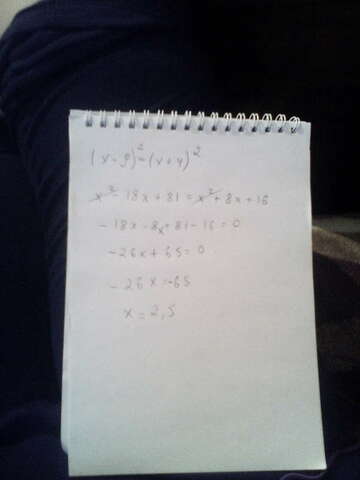 (x-9)²=(x+4)²
x²-18x+81=x²+8x+16
-18x-8x+81-16=0
-26x+65=0
-26x=-65
x=2,5